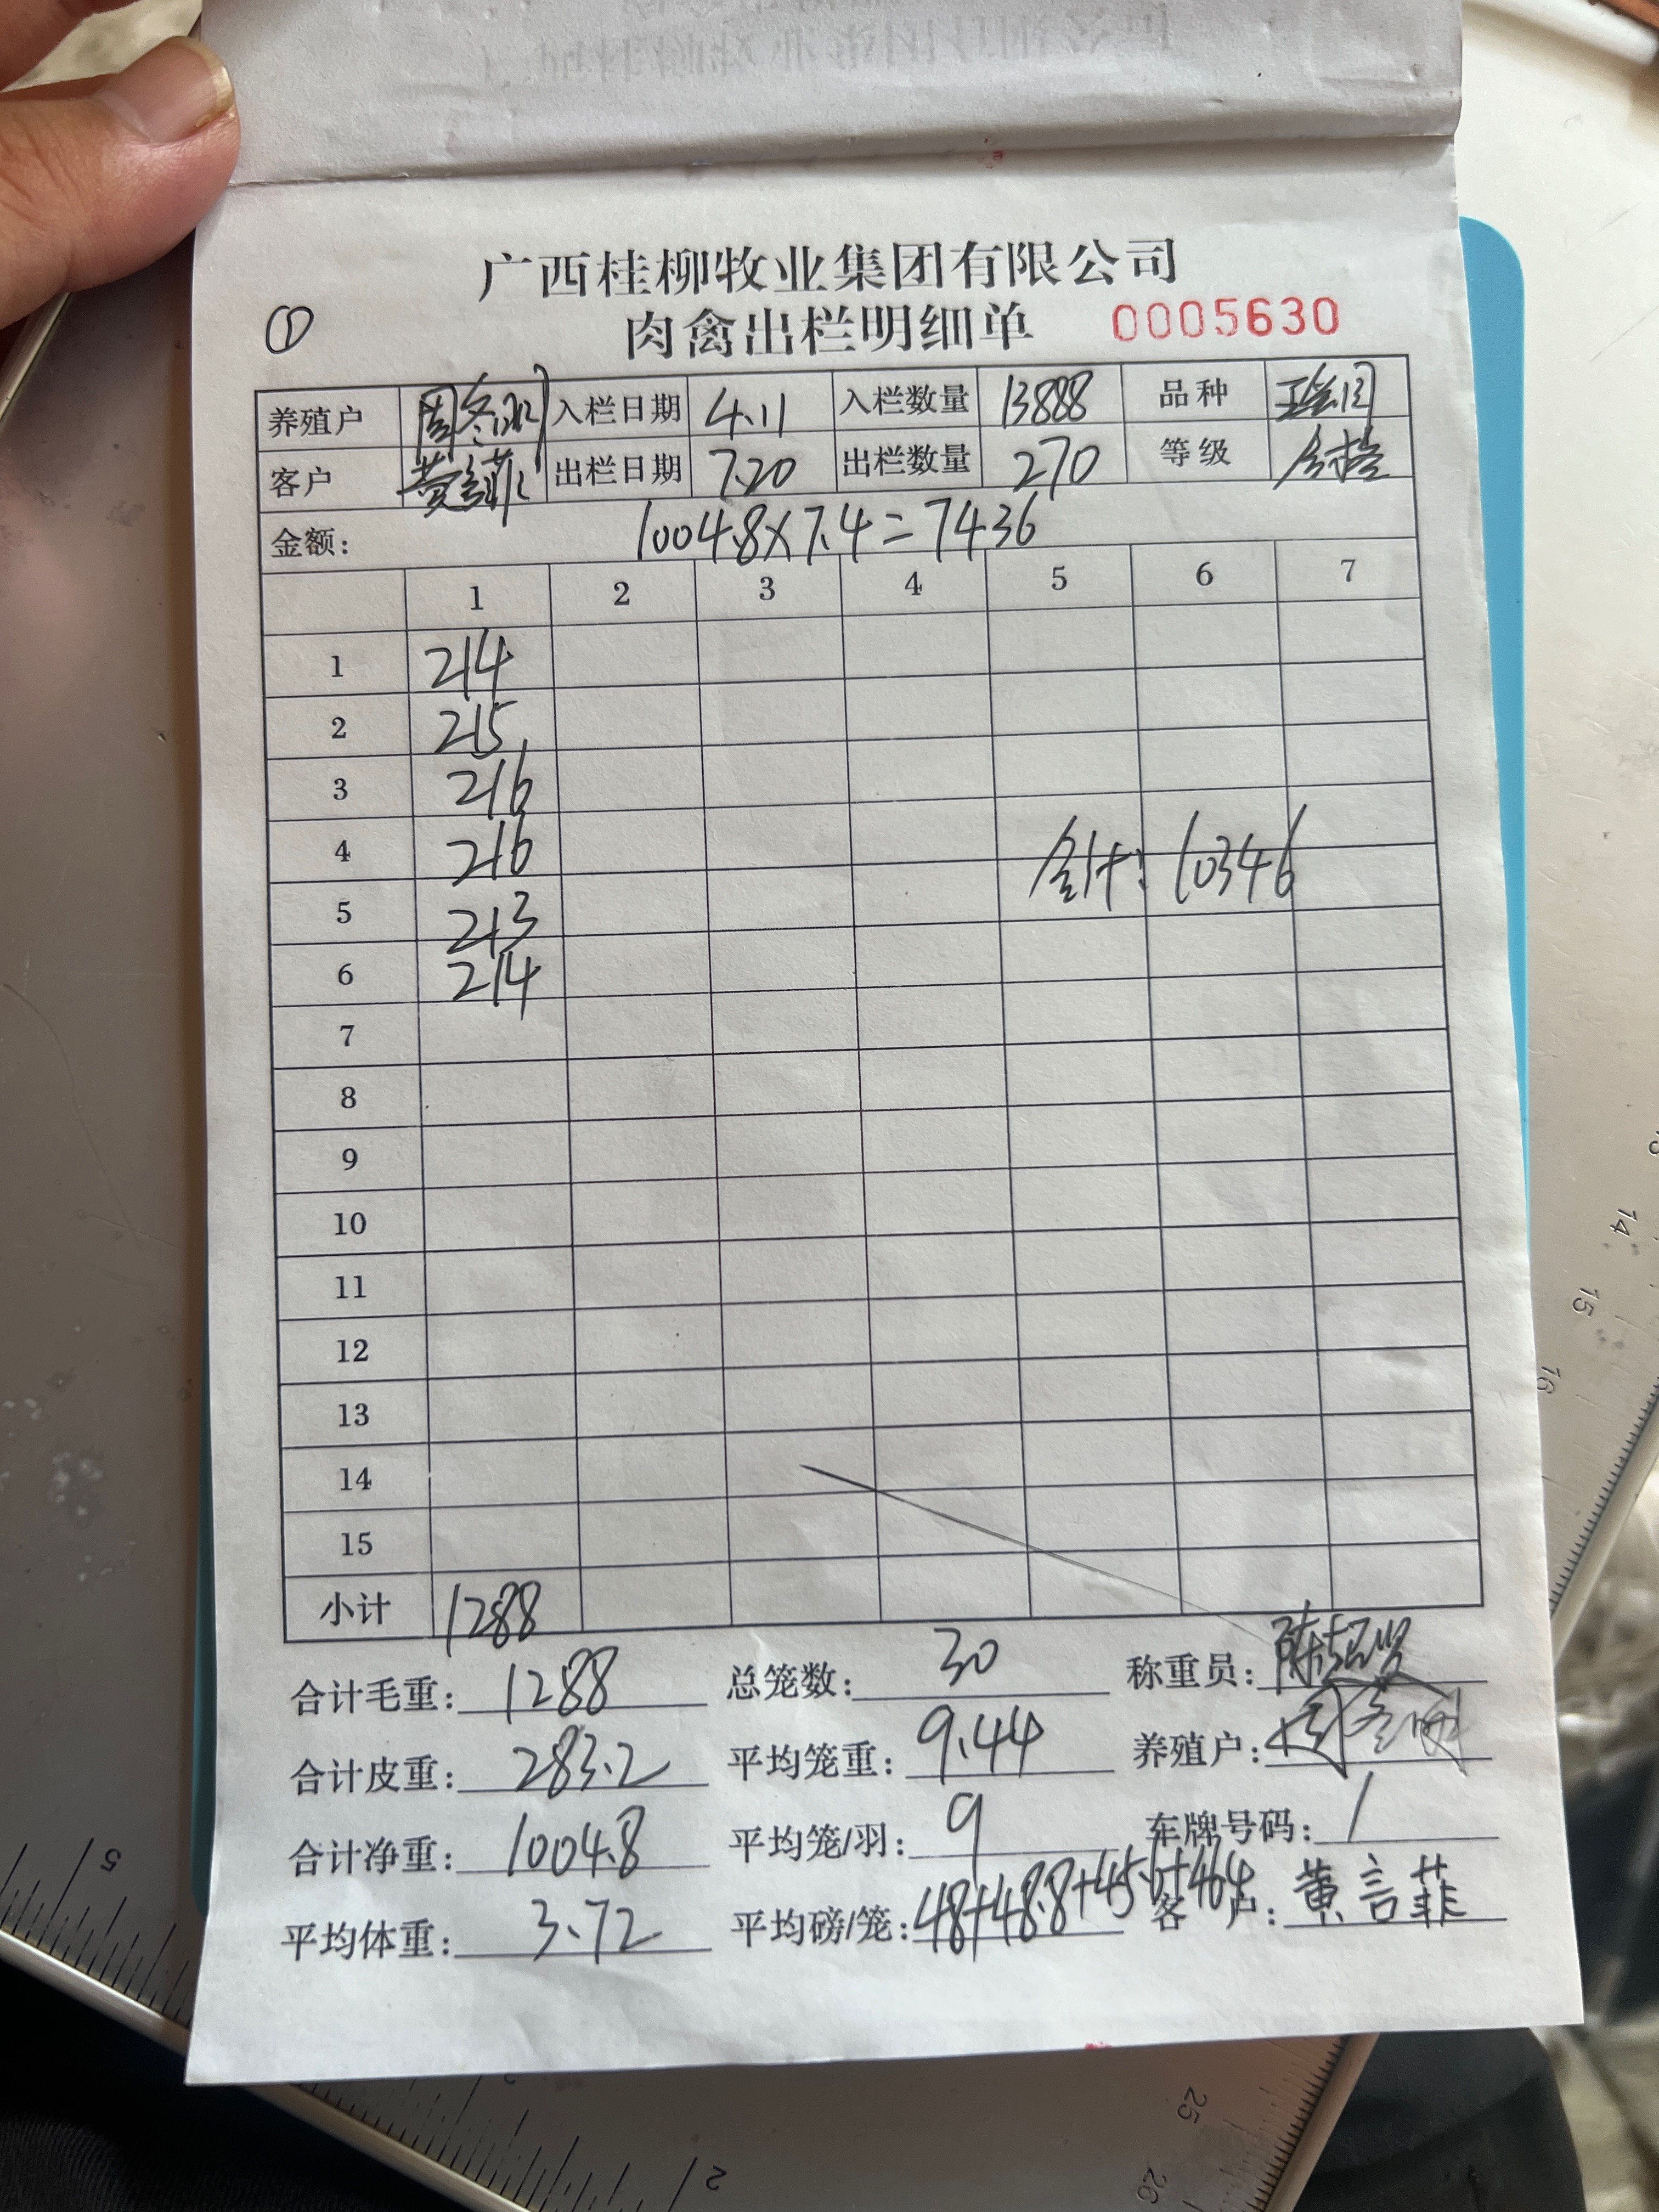 广西桂柳牧业集团有限公司
① 肉禽出栏明细单 0005630
养殖户 周冬 入栏日期 4.11 入栏数量 13888 品种
客户 黄言菲 出栏日期 7.20 出栏数量 270 等级 合格
金额: 1004.8×7.4=7436
1 2 3 4 5 6 7
1 214
2 215
3 216
4 216 合计: 10346
5 213
6 214
7
8
9
10
11
12
13
14
15
小计 1288
合计毛重: 1288 总笼数: 30 称重员: 陈
合计皮重: 283.2 平均笼重: 9.44 养殖户: 周冬
合计净重: 1004.8 平均笼/羽: 9 车牌号码: 1
平均体重: 3.72 平均磅/笼: 48+48.8+45.6+46.4 客户: 黄言菲
5
14
15
16
25
26
2